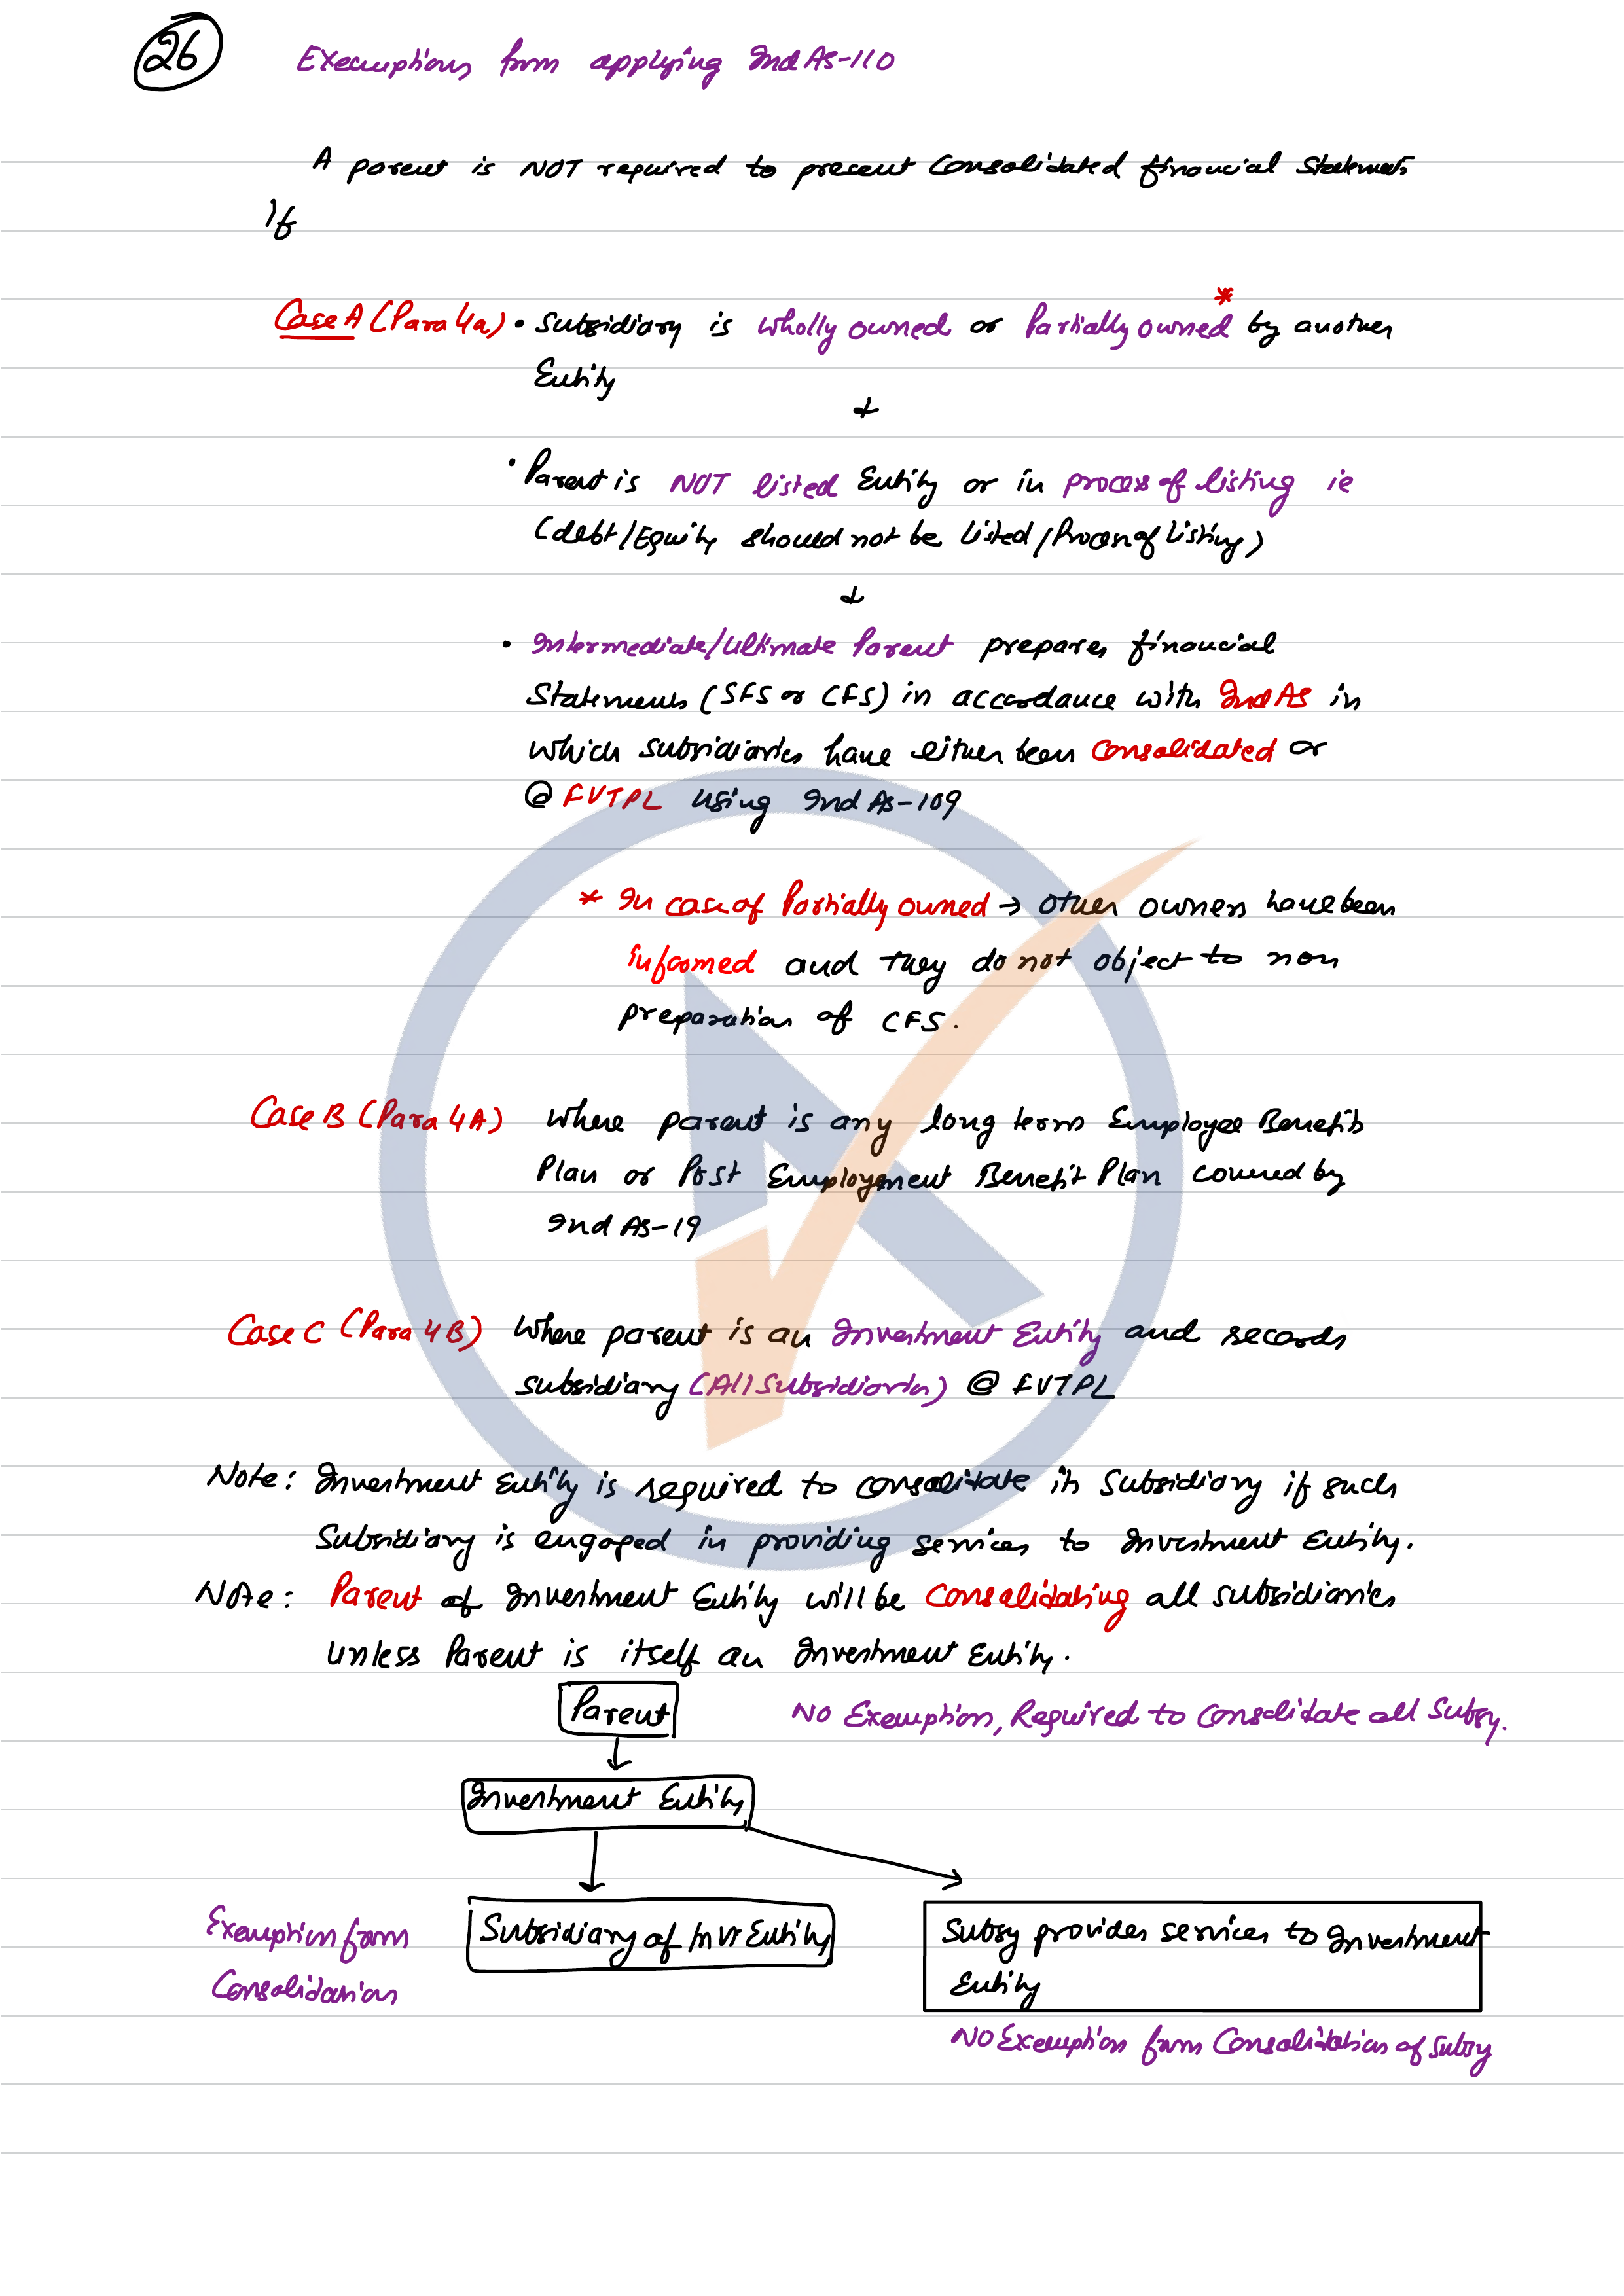 26 Exemptions from applying Ind AS-110
A parent is NOT required to present Consolidated financial Statements
If
Case A (Para 4a) • Subsidiary is wholly owned or Partially owned* by another
Entity
+
• Parent is NOT listed Entity or in process of listing ie
(debt/Equity should not be listed/Process of listing)
+
• Intermediate/Ultimate Parent prepares financial
Statements (SFS or CFS) in accordance with Ind AS in
which subsidiaries have either been Consolidated or
@ FVTPL using Ind AS-109
* In case of Partially owned → other owners have been
informed and they do not object to non
preparation of CFS.
Case B (Para 4A) Where parent is any long term Employee Benefits
Plan or Post Employement Benefit Plan covered by
Ind AS-19
Case C (Para 4B) Where parent is an Investment Entity and records
subsidiary (All Subsidiaries) @ FVTPL
Note: Investment Entity is required to consolidate its Subsidiary if such
Subsidiary is engaged in providing services to Investment Entity.
Note: Parent of Investment Entity will be Consolidating all subsidiaries
unless Parent is itself an Investment Entity.
Parent NO Exemption, Required to Consolidate all Subsy.
Investment Entity
Exemption from Subsidiary of Invt Entity Subsy provides services to Investment
Consolidation Entity
NO Exemption from Consolidation of Subsy